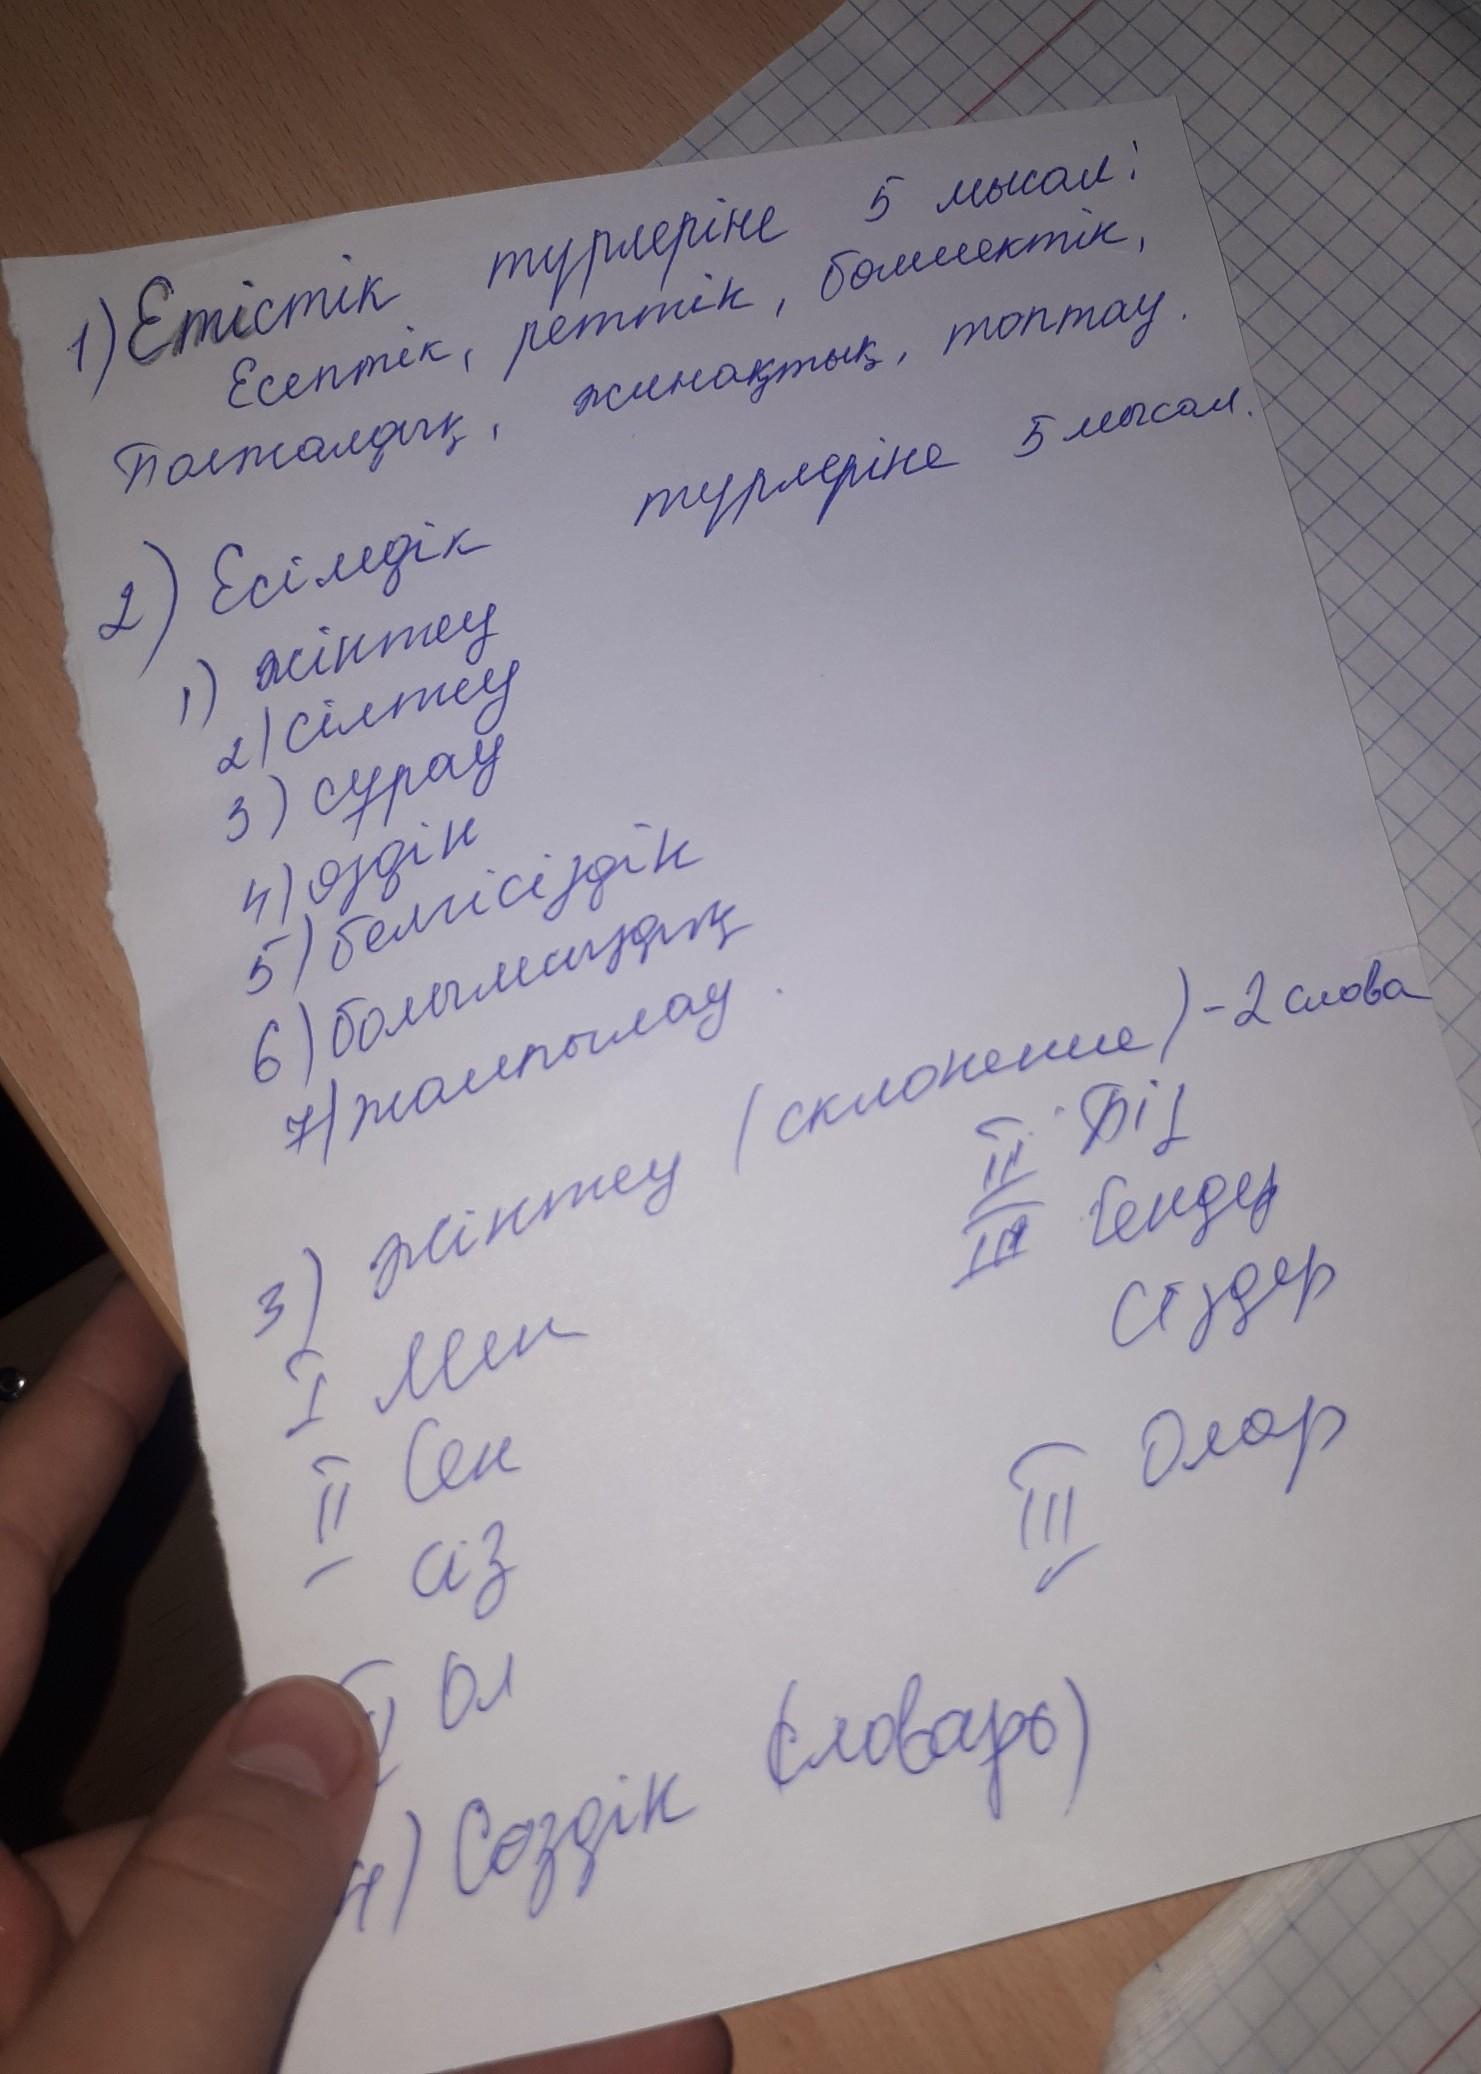 1) Етістік түрлеріне 5 мысал:
Есептік, реттік, бөлшектік,
Болжалдық, жинақтық, топтау.
2) Есімдік түрлеріне 5 мысал.
1) жіктеу
2) сілтеу
3) сұрау
4) өздік
5) белгісіздік
6) болымсыздық
7) жалпылау.
3) жіктеу (склонение) - 2 слова
I Мен
II Сен
сіз
Ол
II Біз
III Сендер
Сіздер
III Олар
4) Сөздік (словарь)